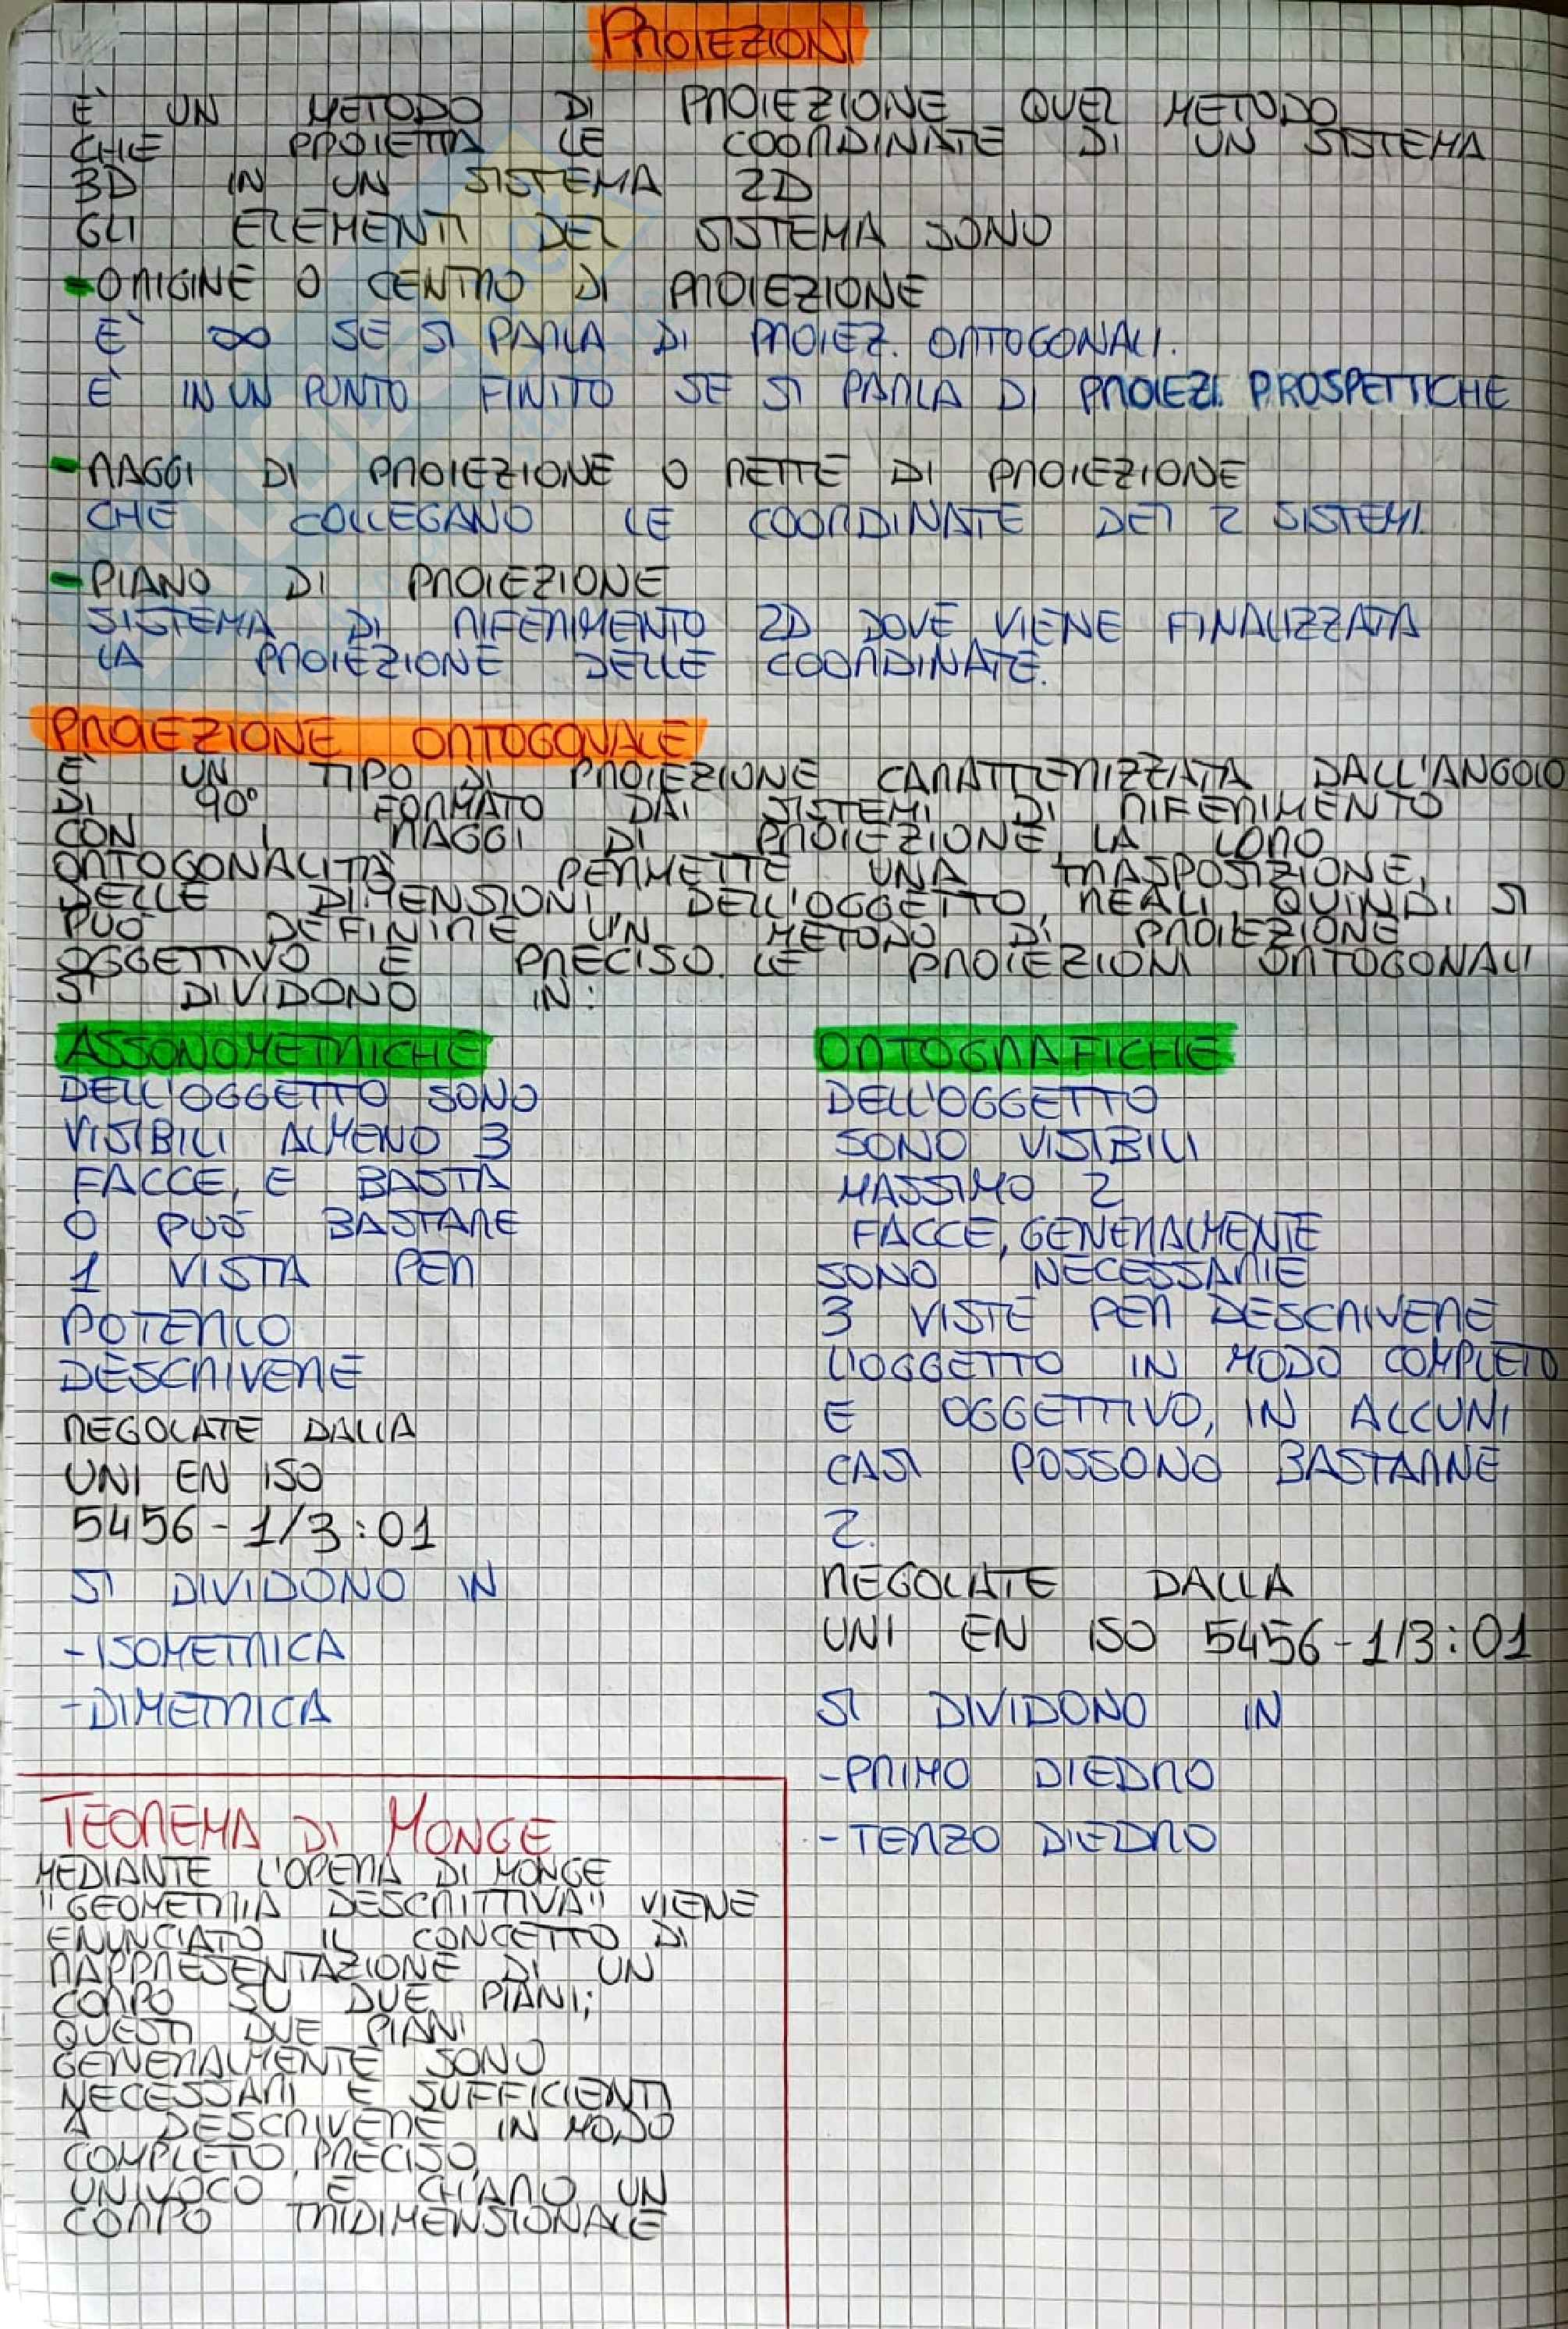 PROIEZIONI
È UN METODO DI PROIEZIONE QUEL METODO
CHE PROIETTA LE COORDINATE DI UN SISTEMA
3D IN UN SISTEMA 2D
GLI ELEMENTI DEL SISTEMA SONO
- ORIGINE O CENTRO DI PROIEZIONE
È ∞ SE SI PARLA DI PROIEZ. ORTOGONALI.
È IN UN PUNTO FINITO SE SI PARLA DI PROIEZI. PROSPETTICHE
- RAGGI DI PROIEZIONE O RETTE DI PROIEZIONE
CHE COLLEGANO LE COORDINATE DEI 2 SISTEMI.
- PIANO DI PROIEZIONE
SISTEMA DI RIFERIMENTO 2D DOVE VIENE FINALIZZATA
LA PROIEZIONE DELLE COORDINATE.
PROIEZIONE ORTOGONALE
È UN TIPO DI PROIEZIONE CARATTERIZZATA DALL'ANGOLO
DI 90° FORMATO DAI SISTEMI DI RIFERIMENTO
CON I RAGGI DI PROIEZIONE, LA LORO
ORTOGONALITÀ PERMETTE UNA TRASPOSIZIONE,
DELLE DIMENSIONI DELL'OGGETTO, REALI, QUINDI SI
PUÒ DEFINIRE UN METODO DI PROIEZIONE
OGGETTIVO E PRECISO. LE PROIEZIONI ORTOGONALI
SI DIVIDONO IN:
ASSONOMETRICHE
DELL'OGGETTO SONO
VISIBILI ALMENO 3
FACCE, E BASTA
O PUÒ BASTARE
1 VISTA PER
POTERLO
DESCRIVERE
REGOLATE DALLA
UNI EN ISO
5456-1/3:01
SI DIVIDONO IN
-ISOMETRICA
-DIMETRICA
ORTOGRAFICHE
DELL'OGGETTO
SONO VISIBILI
MASSIMO 2
FACCE, GENERALMENTE
SONO NECESSARIE
3 VISTE PER DESCRIVERE
L'OGGETTO IN MODO COMPLETO
E OGGETTIVO, IN ALCUNI
CASI POSSONO BASTARNE
2.
REGOLATE DALLA
UNI EN ISO 5456-1/3:01
SI DIVIDONO IN
-PRIMO DIEDRO
-TERZO DIEDRO
TEOREMA DI MONGE
MEDIANTE L'OPERA DI MONGE
"GEOMETRIA DESCRITTIVA" VIENE
ENUNCIATO IL CONCETTO DI
RAPPRESENTAZIONE DI UN
CORPO SU DUE PIANI;
QUESTI DUE PIANI
GENERALMENTE SONO
NECESSARI E SUFFICIENTI
A DESCRIVERE IN MODO
COMPLETO, PRECISO,
UNIVOCO E CHIARO UN
CORPO TRIDIMENSIONALE